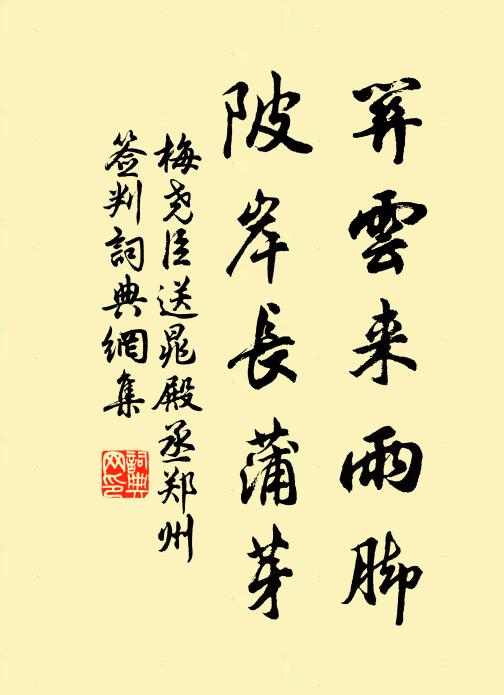 笄雲来雨脚
陂岸長蒲芽
梅尧臣送晁殿丞郑州
签判詞典網集
詞典
网印